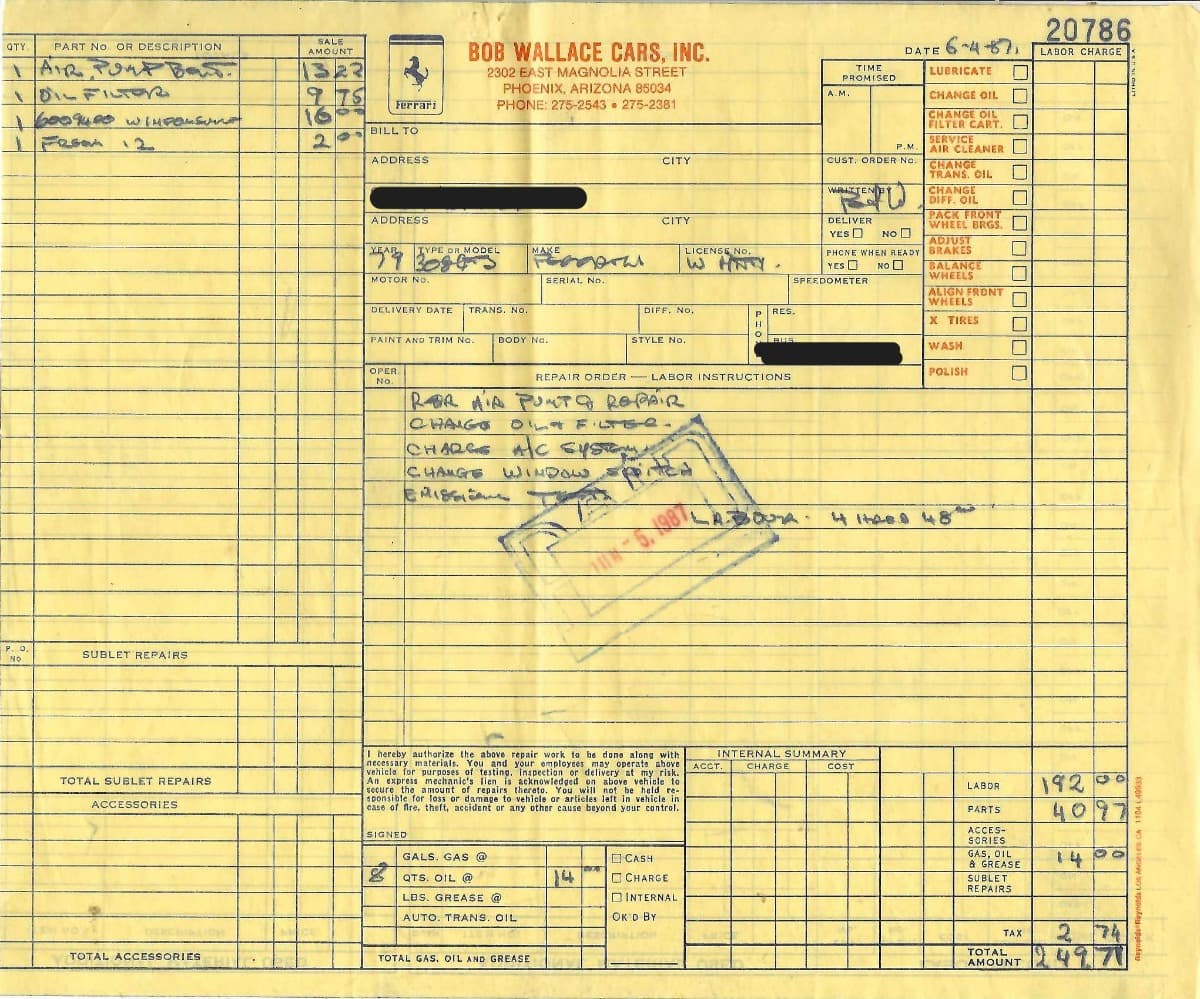 20786
QTY. PART No. OR DESCRIPTION SALE AMOUNT
1 AIR PUMP BELT. 13 22
1 OIL FILTER 9 75
1 6009400 16 00
1 FREON 12 2 00
P. O. No SUBLET REPAIRS
TOTAL SUBLET REPAIRS
ACCESSORIES
TOTAL ACCESSORIES
Ferrari
BOB WALLACE CARS, INC.
2302 EAST MAGNOLIA STREET
PHOENIX, ARIZONA 85034
PHONE: 275-2543 • 275-2381
DATE 6-4-87.
BILL TO
ADDRESS CITY
ADDRESS CITY
TIME PROMISED
A.M.
P.M.
CUST. ORDER No.
WRITTEN BY Bob W.
DELIVER
YES NO
PHONE WHEN READY
YES NO
YEAR 79 TYPE OR MODEL 308GTS MAKE FERRARI LICENSE No.
MOTOR No. SERIAL No. SPEEDOMETER
DELIVERY DATE TRANS. No. DIFF. No. PHO RES.
PAINT AND TRIM No. BODY No. STYLE No. BUS.
LABOR CHARGE
LUBRICATE
CHANGE OIL
CHANGE OIL FILTER CART.
SERVICE AIR CLEANER
CHANGE TRANS. OIL
CHANGE DIFF. OIL
PACK FRONT WHEEL BRGS.
ADJUST BRAKES
BALANCE WHEELS
ALIGN FRONT WHEELS
X TIRES
WASH
POLISH
OPER. No. REPAIR ORDER — LABOR INSTRUCTIONS
R&R AIR PUMP & REPAIR
CHANGE OIL & FILTER.
CHARGE A/C SYSTEM.
CHANGE WINDOW SWITCH
EMISSION TEST
LABOUR. 4 HRS @ 48 00
JUN - 5. 1987
I hereby authorize the above repair work to be done along with
necessary materials. You and your employees may operate above
vehicle for purposes of testing, inspection or delivery at my risk.
An express mechanic's lien is acknowledged on above vehicle to
secure the amount of repairs thereto. You will not be held re-
sponsible for loss or damage to vehicle or articles left in vehicle in
case of fire, theft, accident or any other cause beyond your control.
SIGNED
GALS. GAS @
8 QTS. OIL @ 14 00
LBS. GREASE @
AUTO. TRANS. OIL
TOTAL GAS, OIL AND GREASE
CASH
CHARGE
INTERNAL
OK'D BY
INTERNAL SUMMARY
ACCT. CHARGE COST
LABOR 192 00
PARTS 40 97
ACCES-SORIES
GAS, OIL & GREASE 14 00
SUBLET REPAIRS
TAX 2 74
TOTAL AMOUNT 249 71